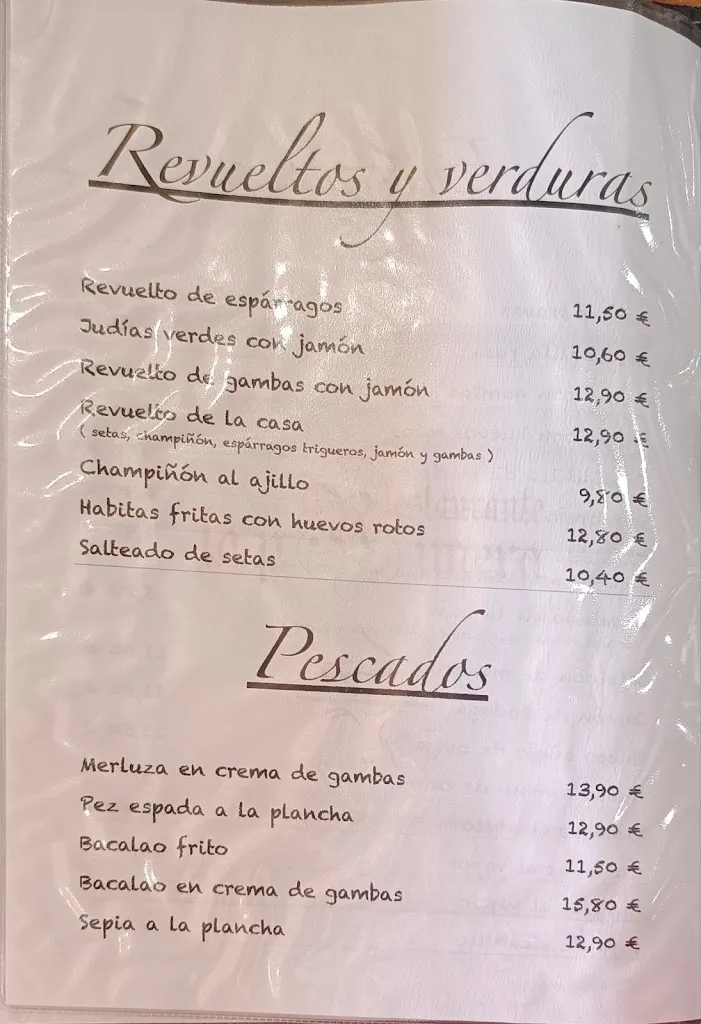 Revueltos y verduras
Revuelto de espárragos 11,50 €
Judías verdes con jamón 10,60 €
Revuelto de gambas con jamón 12,90 €
Revuelto de la casa 12,90 €
( setas, champiñón, espárragos trigueros, jamón y gambas )
Champiñón al ajillo 9,80 €
Habitas fritas con huevos rotos 12,80 €
Salteado de setas 10,40 €
Pescados
Merluza en crema de gambas 13,90 €
Pez espada a la plancha 12,90 €
Bacalao frito 11,50 €
Bacalao en crema de gambas 15,80 €
Sepia a la plancha 12,90 €